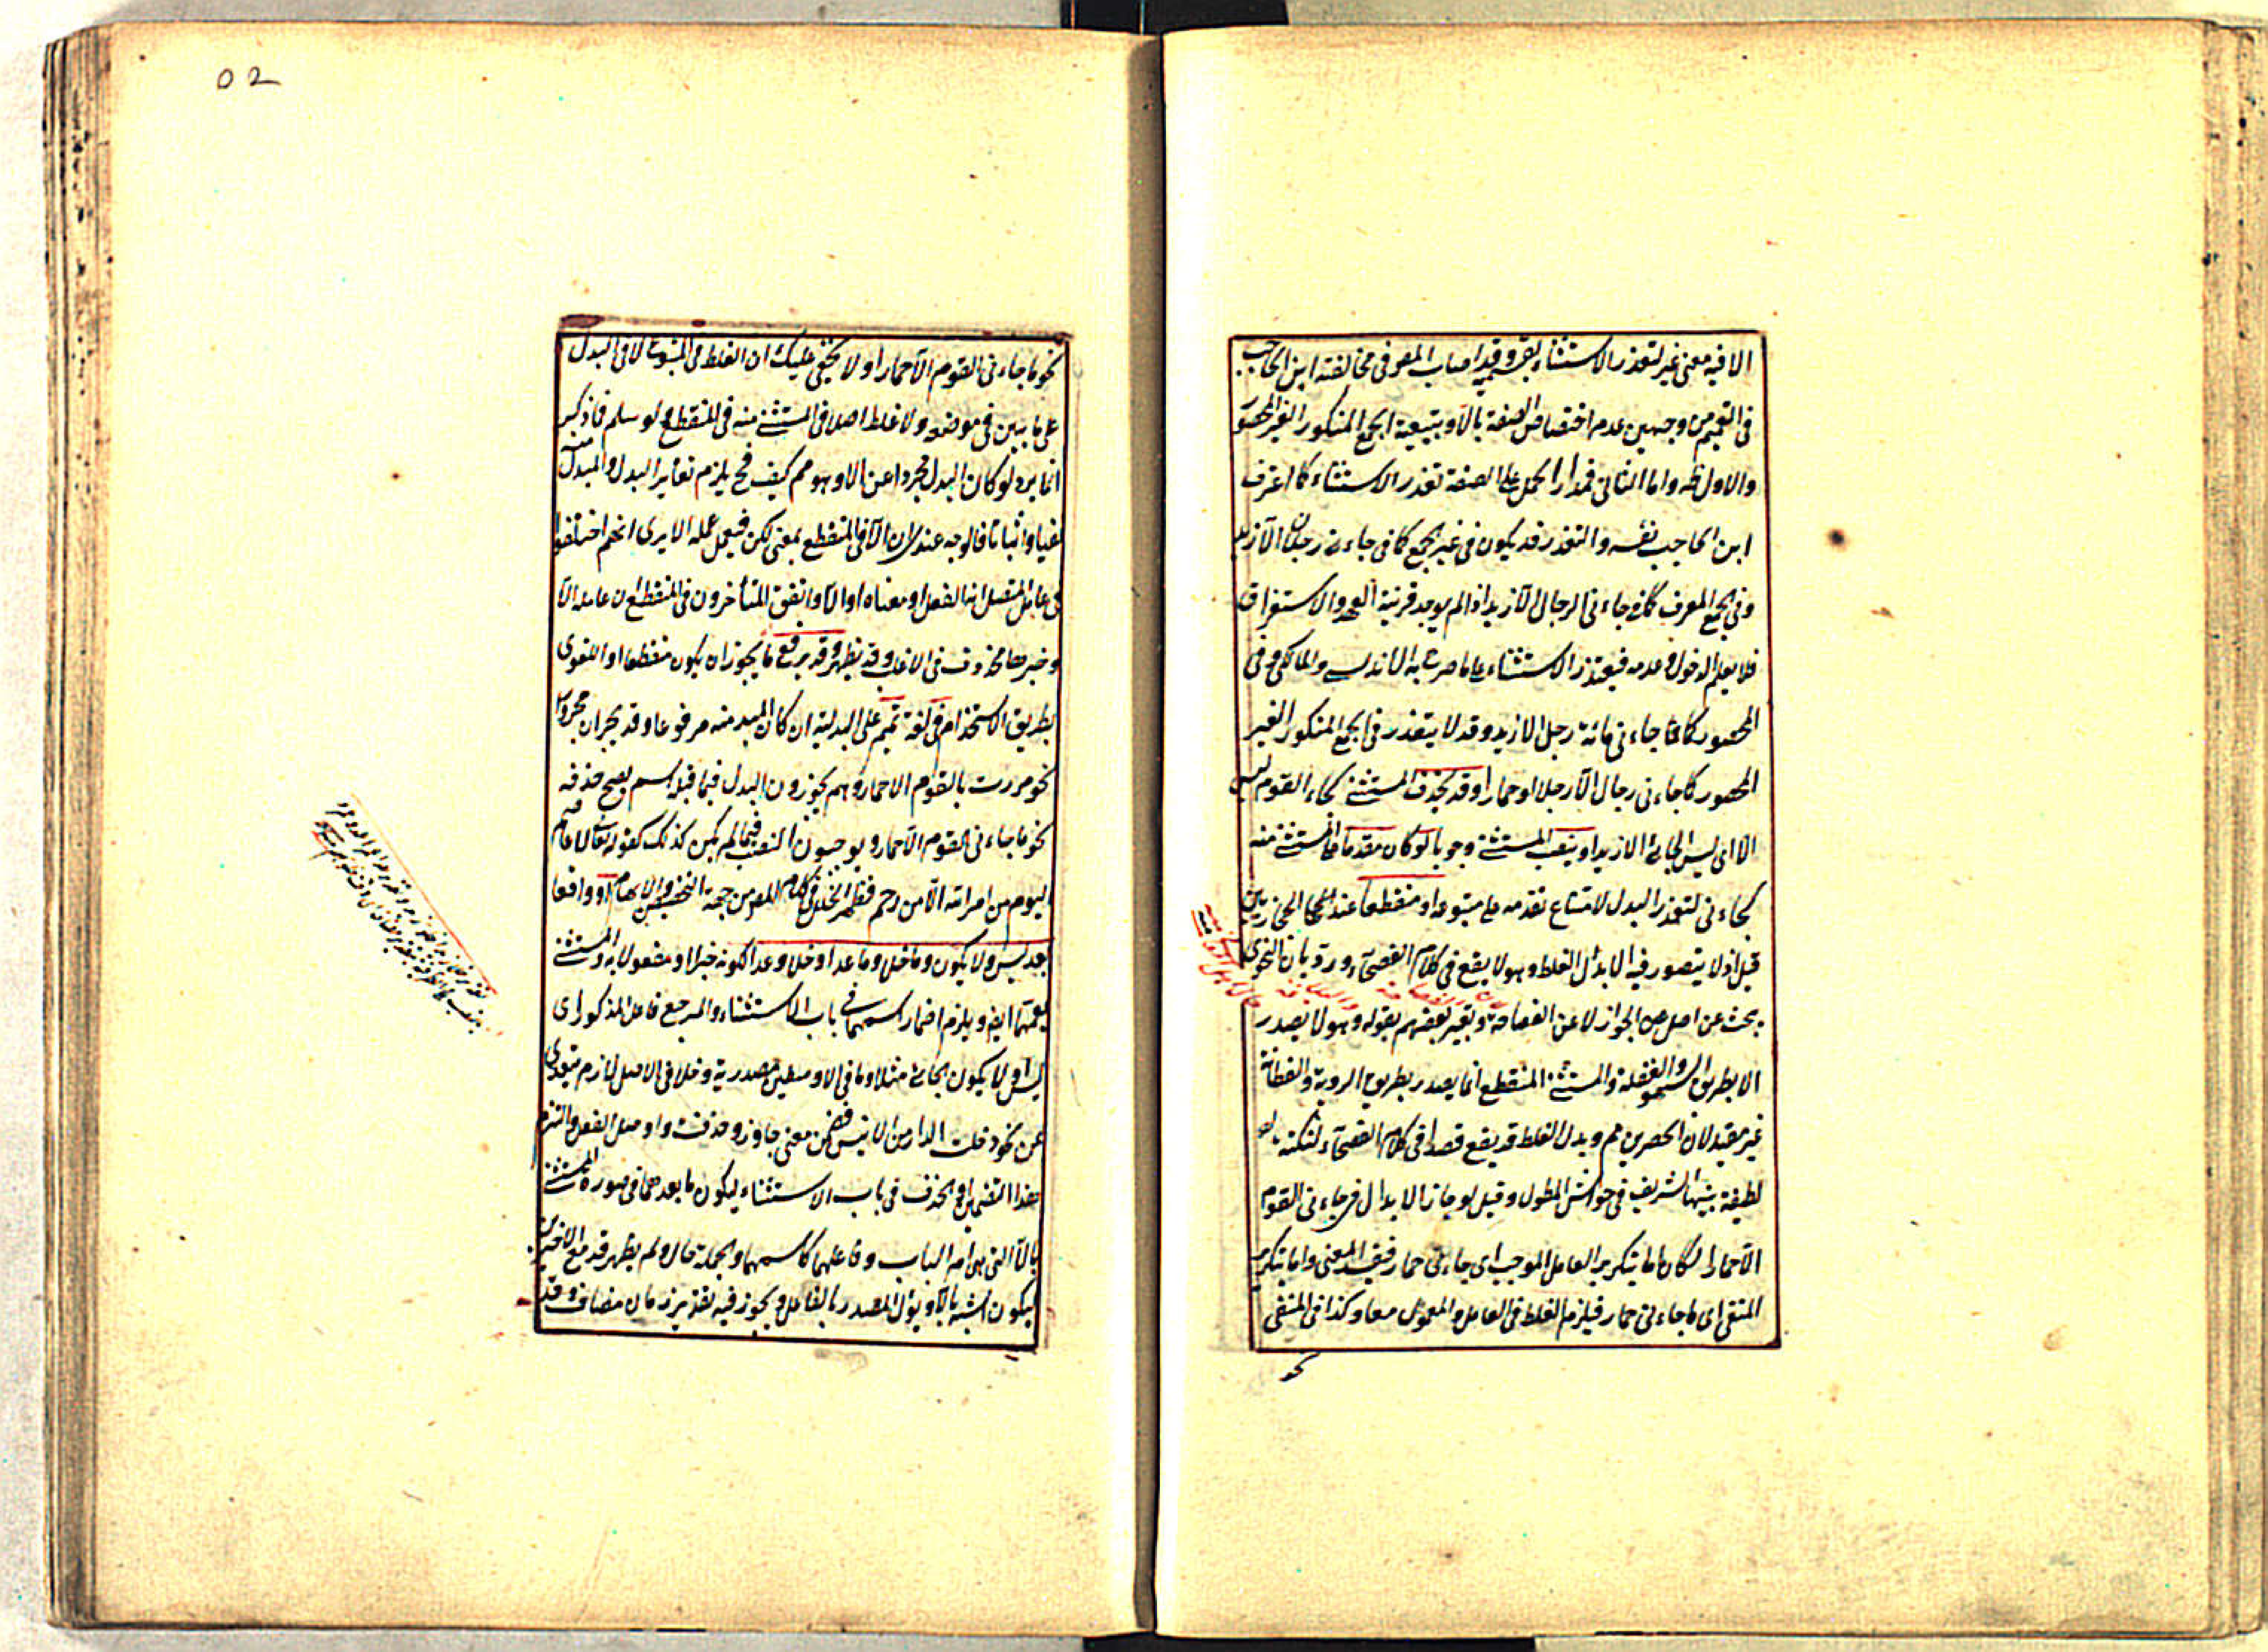 الا فيه معنى غير لتعذر الاستثناء بقرينة وقد اصاب المص في مخالفته ابن الحاجب
في التعميم من وجهين عدم اختصاص الصفة بالا وبتبعية الجمع المنكور الغير المحصور
والاول ظ واما الثاني فمدار الحمل على الصفة تعذر الاستثناء كما اعترف
ابن الحاجب نفسه والتعذر قد يكون في غير الجمع كما في جاءني رجلان الا زيد
وفي الجمع المعرف كما في جاءني الرجال الا زيد اذا لم يوجد قرينة العهد والاستغراق
فلا يعلم الدخول وعدمه فيتعذر الاستثناء على ما صرح به الاندلسي والمالكي وفي
المحصور كما في ما جاءني مائة رجل الا زيد وقد لا يتعذر في الجمع المنكور الغير
المحصور كما جاءني رجال الا رجلا او حمارا وقد يحذف المستثنى كجاء القوم ليس
الا اي ليس الجائي الا زيدا وينصب المستثنى وجوبا لو كان مقدما على المستثنى منه
كجاءني لتعذر البدل لامتناع تقدمه على متبوعه او منقطعا عند الحجازيين
قيل اذ لا يتصور فيه الا بدل الغلط وهو لا يقع في كلام الفصحاء ورد بان النحوي
يبحث عن اصل الجواز لا عن الفصاحة وتعبير بعضهم بقوله وهو لا يصدر
الا بطريق السهو والغفلة والمستثنى المنقطع انما يصدر بطريق الروية والفطانة
غير مفيد لان الحصرين مم وبدل الغلط قد يقع قصدا في كلام الفصحاء لنكتة
لطيفة بينها الشريف في حواشي المطول وقيل لو جاز الابدال في جاءني القوم
الا حمارا لكان اما بتكرير العامل الموجب اي جاءني حمار فيفسد المعنى واما بتكرير
المنفي اي ما جاءني حمار فيلزم الغلط في العامل والمعمول معا وكذا في المنفي
نحو
02
نحو ما جاءني القوم الا حمارا ولا يخفى عليك ان الغلط في المتبوع لا في البدل
على ما بين في موضعه ولا غلط اصلا في المستثنى منه في المنقطع ولو سلم فما ذكر
انما يرد لو كان البدل مجردا عن الا وهو مم كيف فح يلزم تغاير البدل والمبدل منه
نفيا واثباتا فالوجه عندي ان الا في المنقطع بمعنى لكن فيعمل عمله الا يرى انهم اختلفوا
في عامل المتصل انه الفعل او معناه او الا واتفق المتأخرون في المنقطع ان عامله الا
وخبرها محذوف في الاغلب وقد يظهر وقد يرفع ما يجوز ان يكون منقطعا او اللغوي
بطريق الاستخدام في لغة تميم على البدلية ان كان المبدل منه مرفوعا وقد يجر ان مجرورا
نحو مررت بالقوم الا حمار وهم يجوزون البدل فيما قبله اسم يصح حذفه
نحو ما جاءني القوم الا حمار ويوجبون النصب فيما لم يكن كذلك كقوله تعالى لا عاصم
اليوم من امر الله الا من رحم فظهر الخلل في كلام المص من جهة التخصيص والابهام او واقعا
بعد ليس ولا يكون وما خلا وما عدا وخلا وعدا لكونه خبرا او مفعولا به والمستثنى
بعضها ايض ويلزم اضمار اسمها في باب الاستثناء والمرجع فاعل المذكور اي
ليس او لا يكون الجائي مثلا وما في الاوسطين مصدرية وخلا في الاصل لازم يتعدى
عن نحو خلت الدار من الانيس ضمن معنى جاوز وحذفت او وصل الفعل والتزم
هذا التضمين او الحذف في باب الاستثناء ليكون ما بعدها في صورة المستثنى
بالا التي هي ام الباب وفاعلها كاسمها والجملة حال ولم يظهر قد مع الاخيرين
ليكون اشبه بالا ويؤل المصدر بالفاعل ويجوز فيه تقدير زمان مضاف وقد